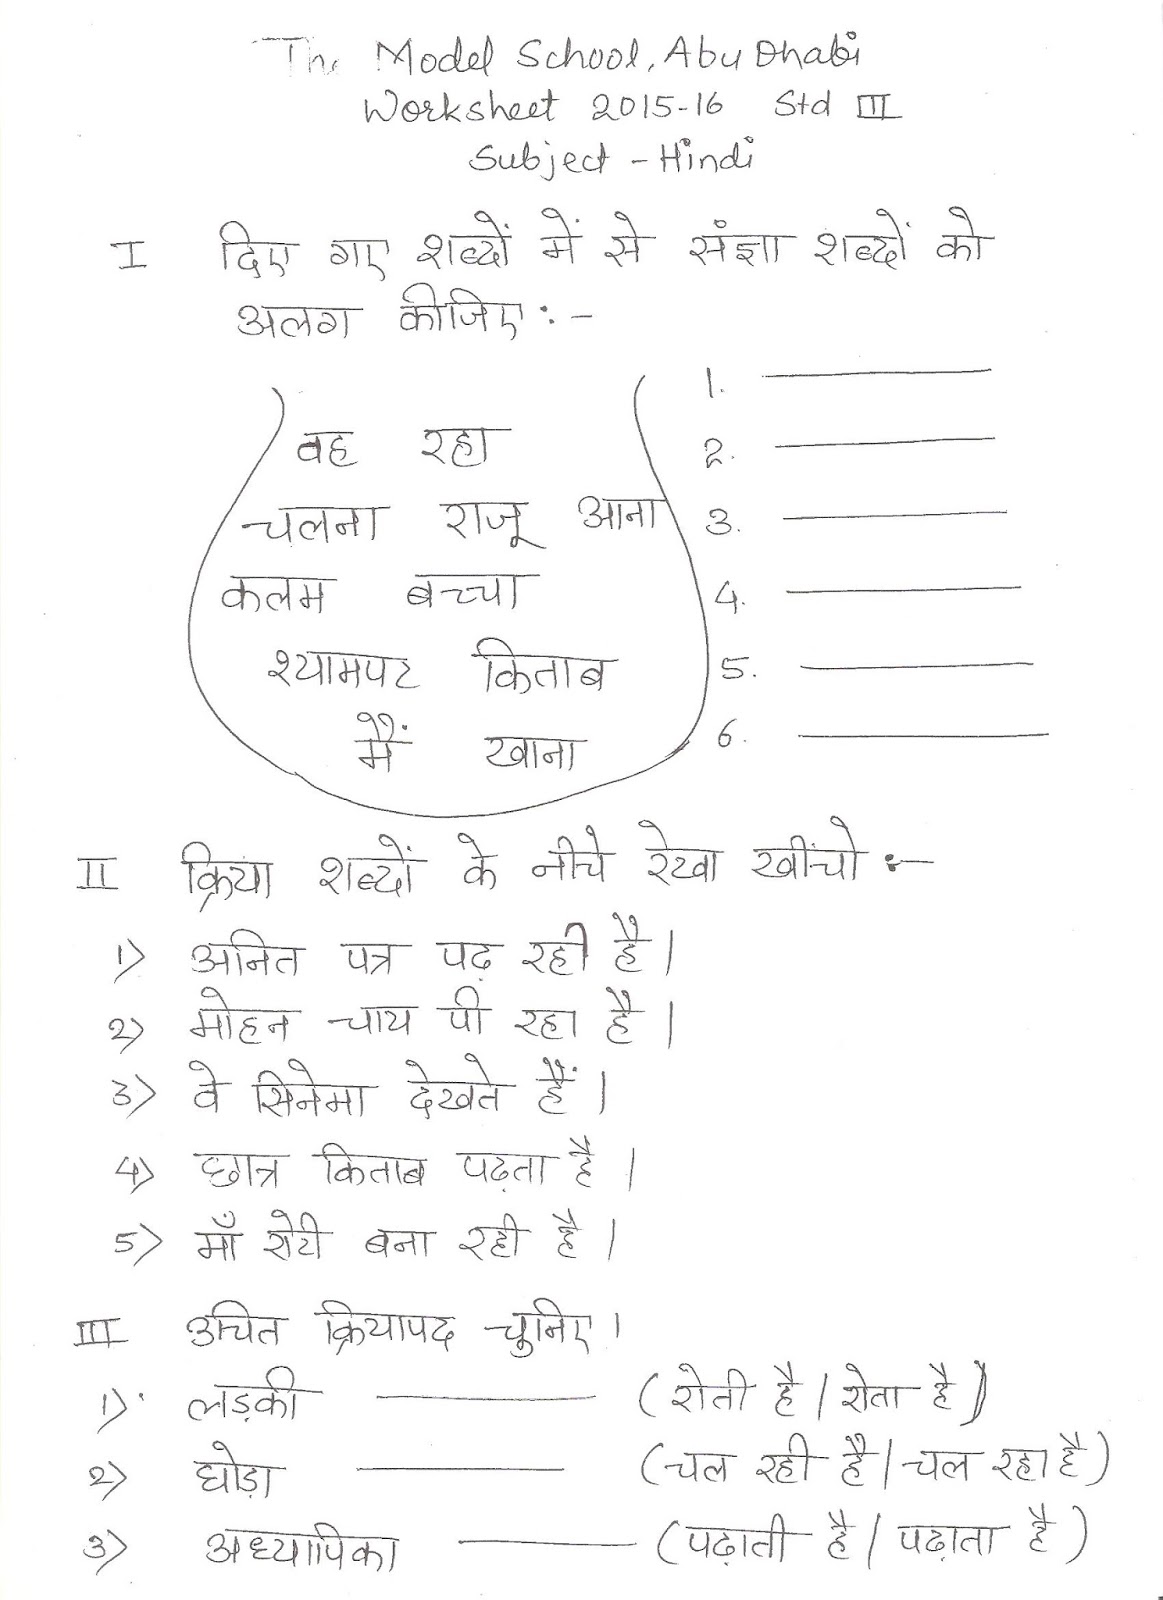 The Model School, Abu Dhabi
Worksheet 2015-16 Std III
Subject - Hindi
I दिए गए शब्दों में से संज्ञा शब्दों को
अलग कीजिए :-
वह रहा
चलना राजू आना
कलम बच्चा
श्यामपट किताब
मैं खाना
1.
2.
3.
4.
5.
6.
II क्रिया शब्दों के नीचे रेखा खींचो :-
1) अनित पत्र पढ़ रही है।
2) मोहन चाय पी रहा है।
3) वे सिनेमा देखते हैं।
4) छात्र किताब पढ़ता है।
5) माँ रोटी बना रही है।
III उचित क्रियापद चुनिए।
1) लड़की ______ (रोती है / रोता है)
2) घोड़ा ______ (चल रही है / चल रहा है)
3) अध्यापिका ______ (पढ़ाती है / पढ़ाता है)